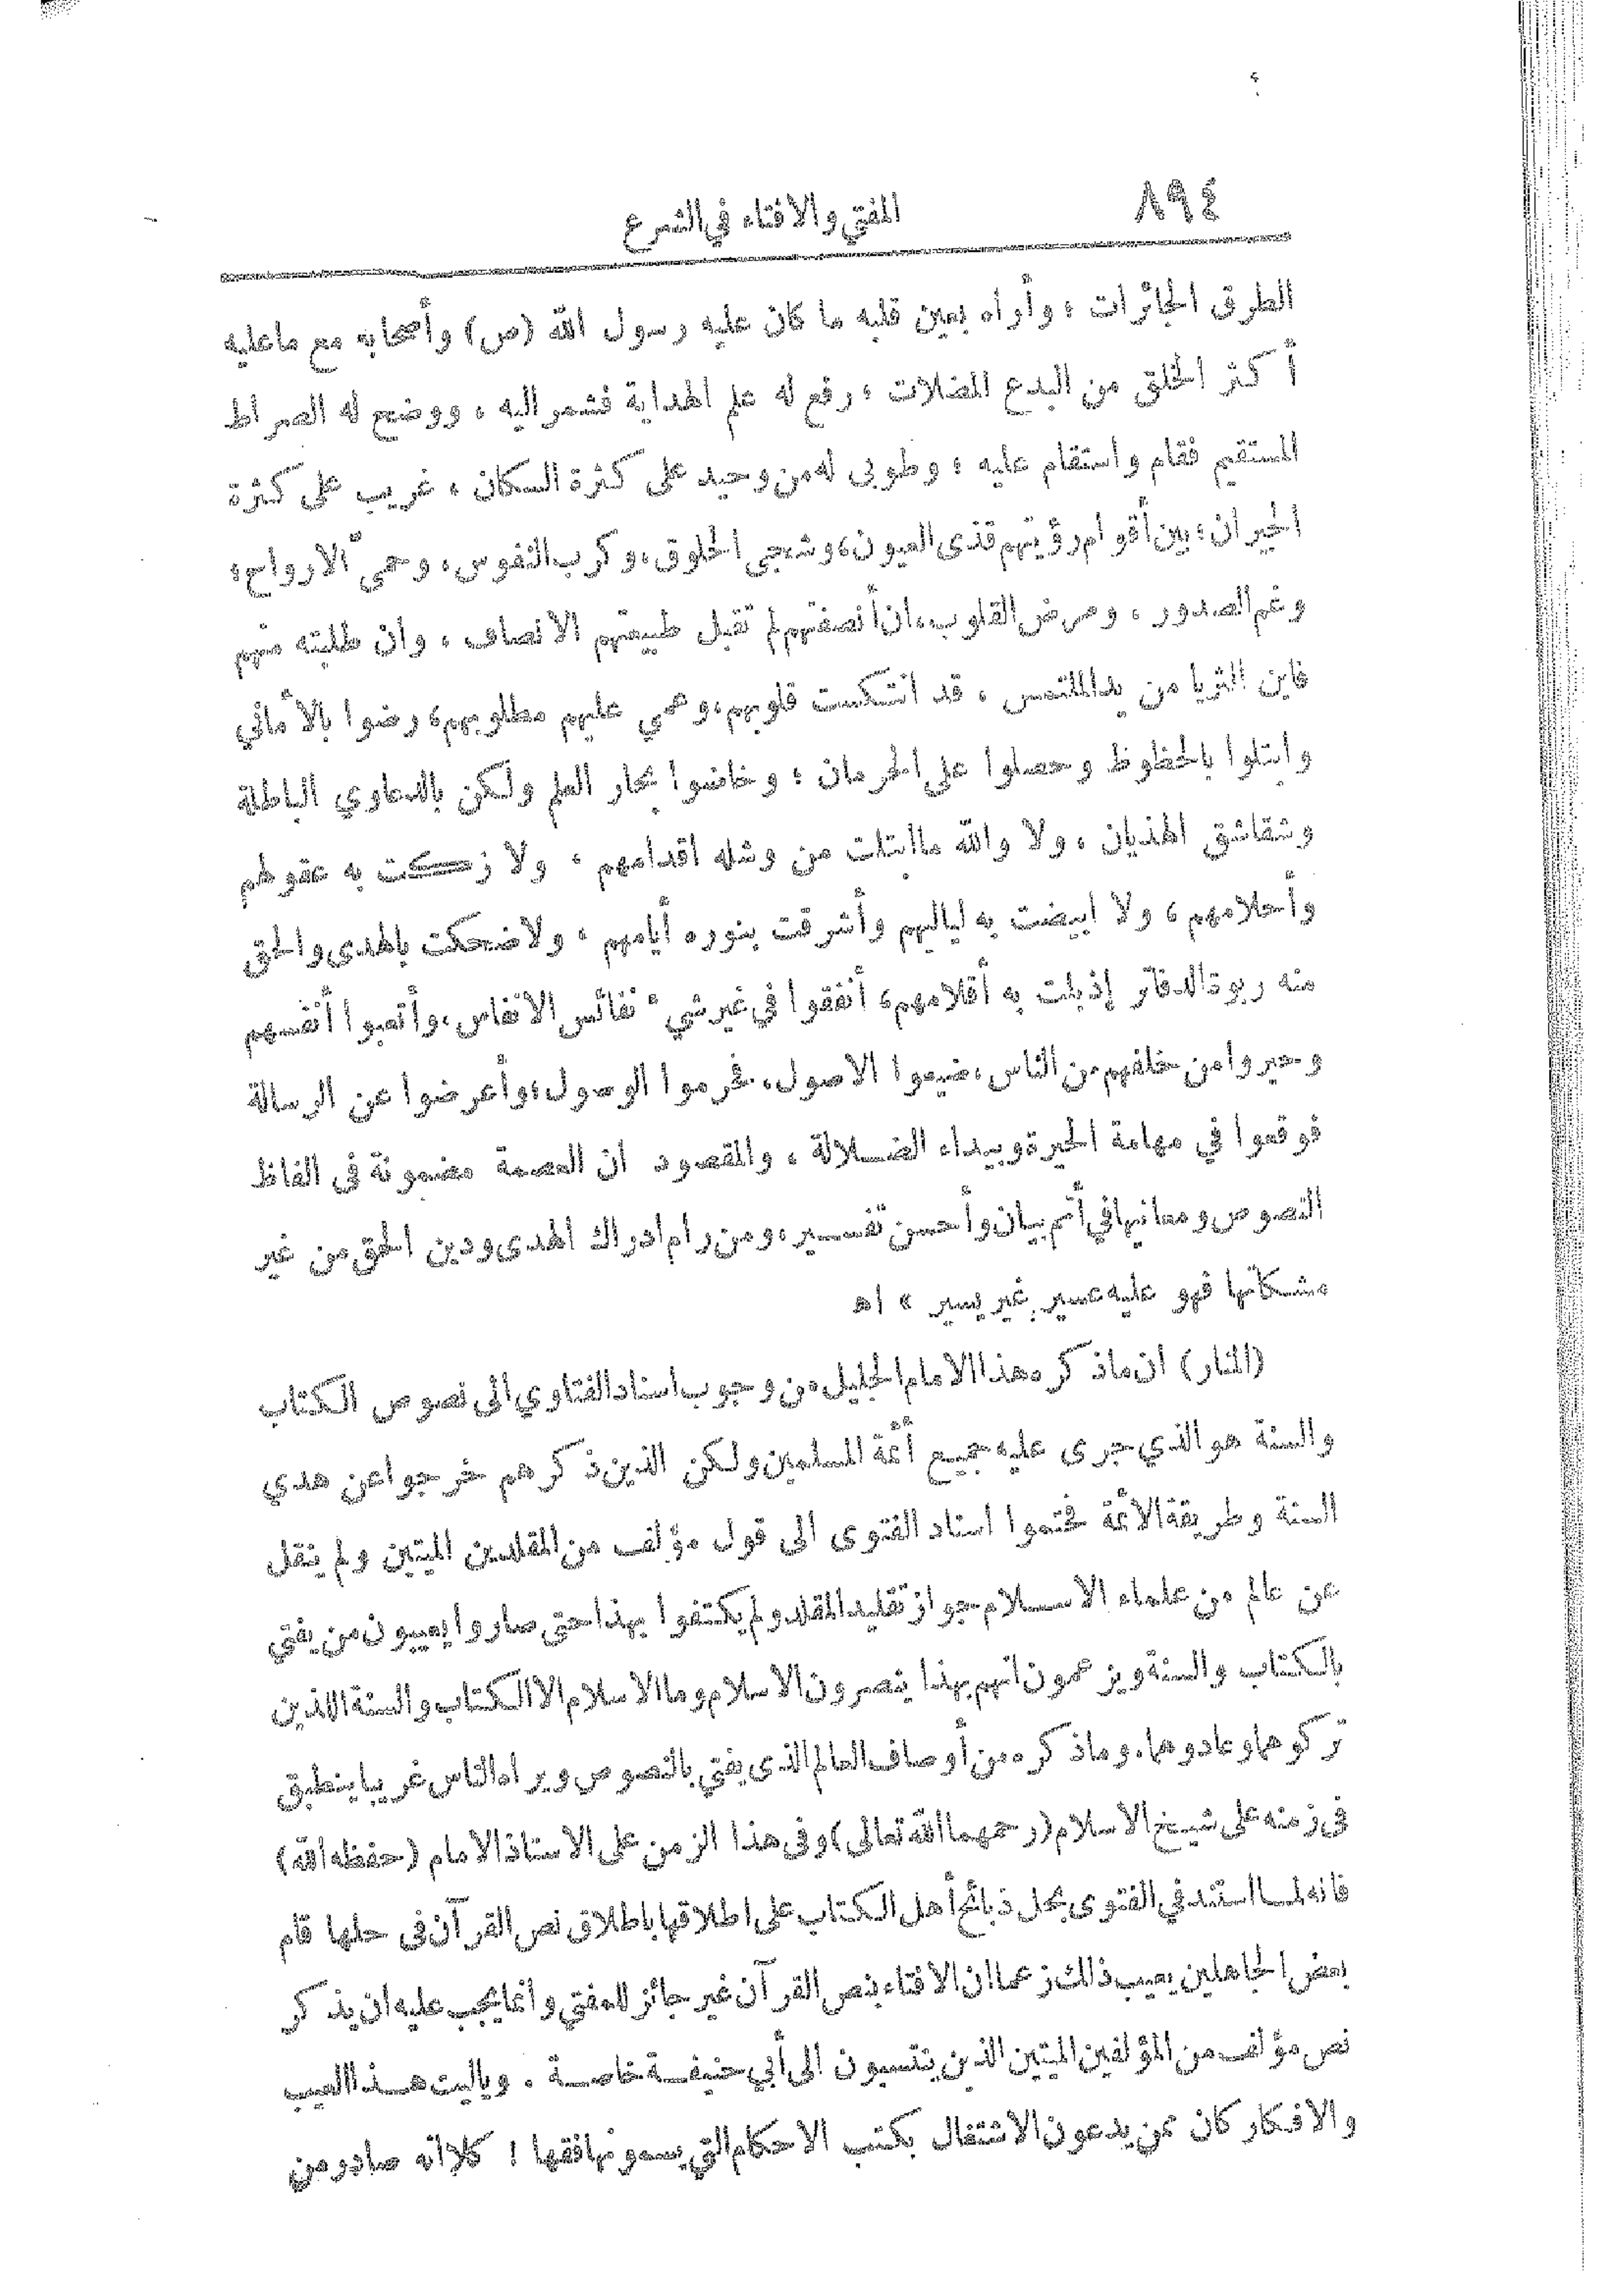 ٨٩٤
المفتي والافتاء في الشرع
الطرق الجائرات ، وأراه بعين قلبه ما كان عليه رسول الله (ص) وأصحابه مع ما عليه
أكثر الخلق من البدع المضلات ، رفع له علم الهداية فشمر اليه ، ووضح له الصراط
المستقيم فقام واستقام عليه ، وطوبى له من وحيد على كثرة السكان ، غريب على كثرة
الجيران ، بين أقوام رؤيتهم قذى العيون ، وشجى الحلوق ، وكرب النفوس ، وحمى الارواح ،
وغم الصدور ، ومرض القلوب ، ان أنصفتهم لم تقبل طبيعتهم الانصاف ، وان طلبته منهم
فاين الثريا من يد الملتمس ، قد انتكست قلوبهم ، وعمي عليهم مطلوبهم ، رضوا بالأماني
وابتلوا بالحظوظ وحصلوا على الحرمان ، وخاضوا بحار العلم ولكن بالدعاوي الباطلة
وشقاشق الهذيان ، ولا والله ما ابتلت من وشله اقدامهم ، ولا زكت به عقولهم
وأحلامهم ، ولا ابيضت به لياليهم وأشرقت بنوره أيامهم ، ولا ضحكت بالهدى والحق
منه ربوة الدفاتر إذ بلت به أقلامهم ، أنفقوا في غير شيء نفائس الانفاس ، وأتعبوا أنفسهم
وحيروا من خلفهم من الناس ، ضيعوا الاصول ، فحرموا الوصول ، وأعرضوا عن الرسالة
فوقعوا في مهامة الحيرة وبيداء الضلالة ، والمقصود ان العصمة مضمونة في الفاظ
النصوص ومعانيها في أتم بيان وأحسن تفسير ، ومن رام ادراك الهدى ودين الحق من غير
مشكاتها فهو عليه عسير غير يسير » اهـ
(المنار) ان ماذكره هذا الامام الجليل من وجوب اسناد الفتاوي الى نصوص الكتاب
والسنة هو الذي جرى عليه جميع أئمة المسلمين ولكن الذين ذكرهم خرجوا عن هدي
السنة وطريقة الائمة فحتموا اسناد الفتوى الى قول مؤلف من المقلدين الميتين ولم ينقل
عن عالم من علماء الاسلام جواز تقليد المقلد ولم يكتفوا بهذا حتى صاروا يعيبون من يفتي
بالكتاب والسنة ويزعمون انهم بهذا ينصرون الاسلام وما الاسلام الا الكتاب والسنة اللذين
تركوهما وعادوهما . وماذكره من أوصاف العالم الذى يفتي بالنصوص ويراه الناس غريبا ينطبق
فى زمنه على شيخ الاسلام (رحمهما الله تعالى) وفى هذا الزمن على الاستاذ الامام (حفظه الله)
فانه لما استند في الفتوى بحل ذبائح أهل الكتاب على اطلاقها باطلاق نص القرآن فى حلها قام
بعض الجاهلين يعيب ذلك زعما ان الافتاء بنص القرآن غير جائز للمفتي وانما يجب عليه ان يذكر
نص مؤلف من المؤلفين الميتين الذين ينتسبون الى أبي حنيفة خاصة . وياليت هذا العيب
والافكار كان ممن يدعون الاشتغال بكتب الاحكام التي يسمونها فقها ! كلا انه صادر من